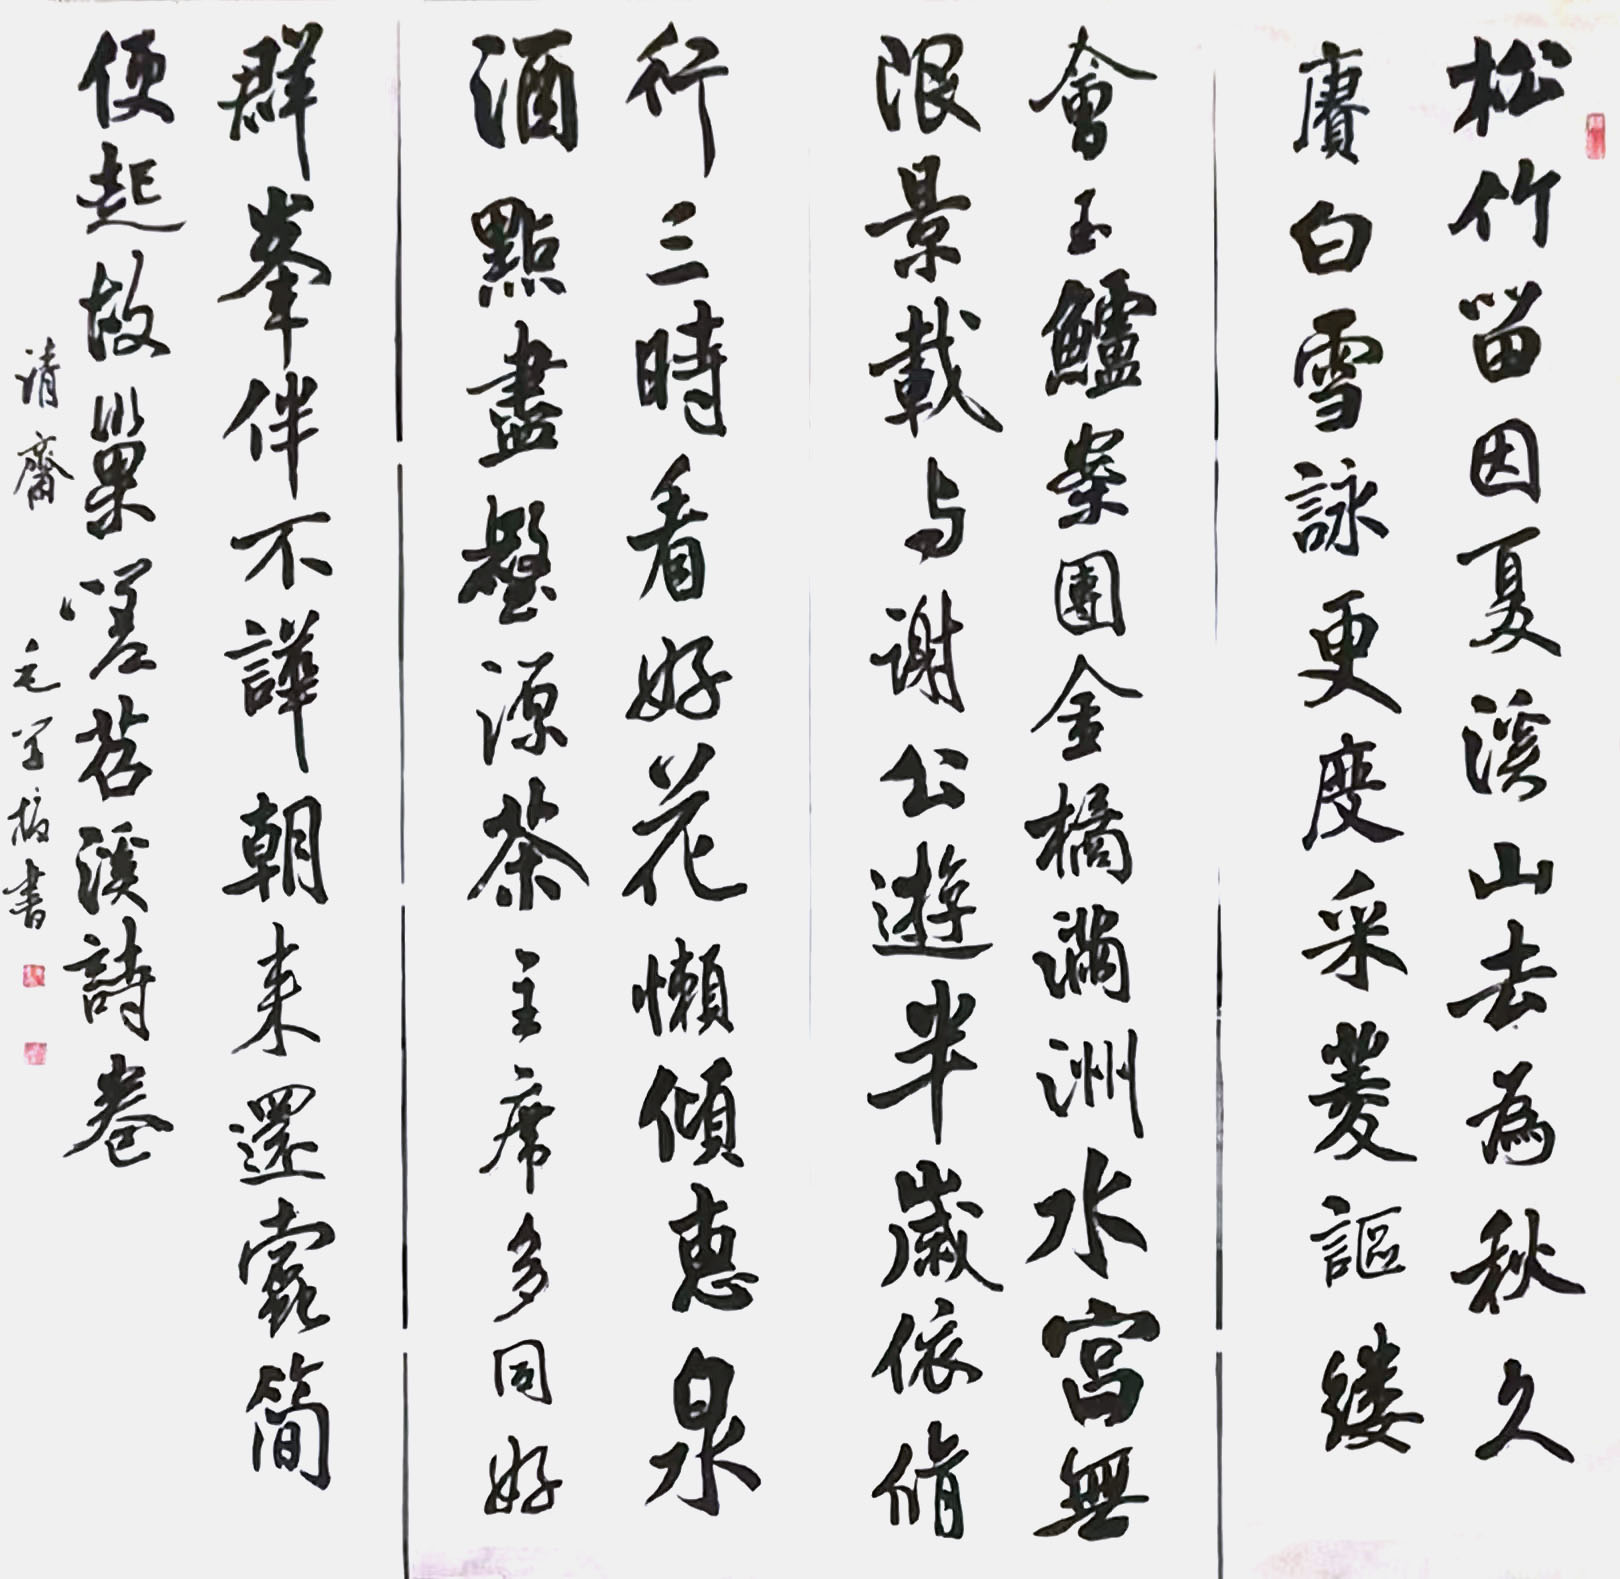 松竹留因夏溪山去為秋久
賡白雪詠更度采菱謳縷
會玉鱸案團金橘滿洲水宮無
限景載与謝公遊半歲依脩
行三時看好花懶傾惠泉
酒點盡壑源茶主席多同好
群峯伴不譁朝来還蠹簡
便起故巢嗟苕溪詩卷
清齋 毛学書